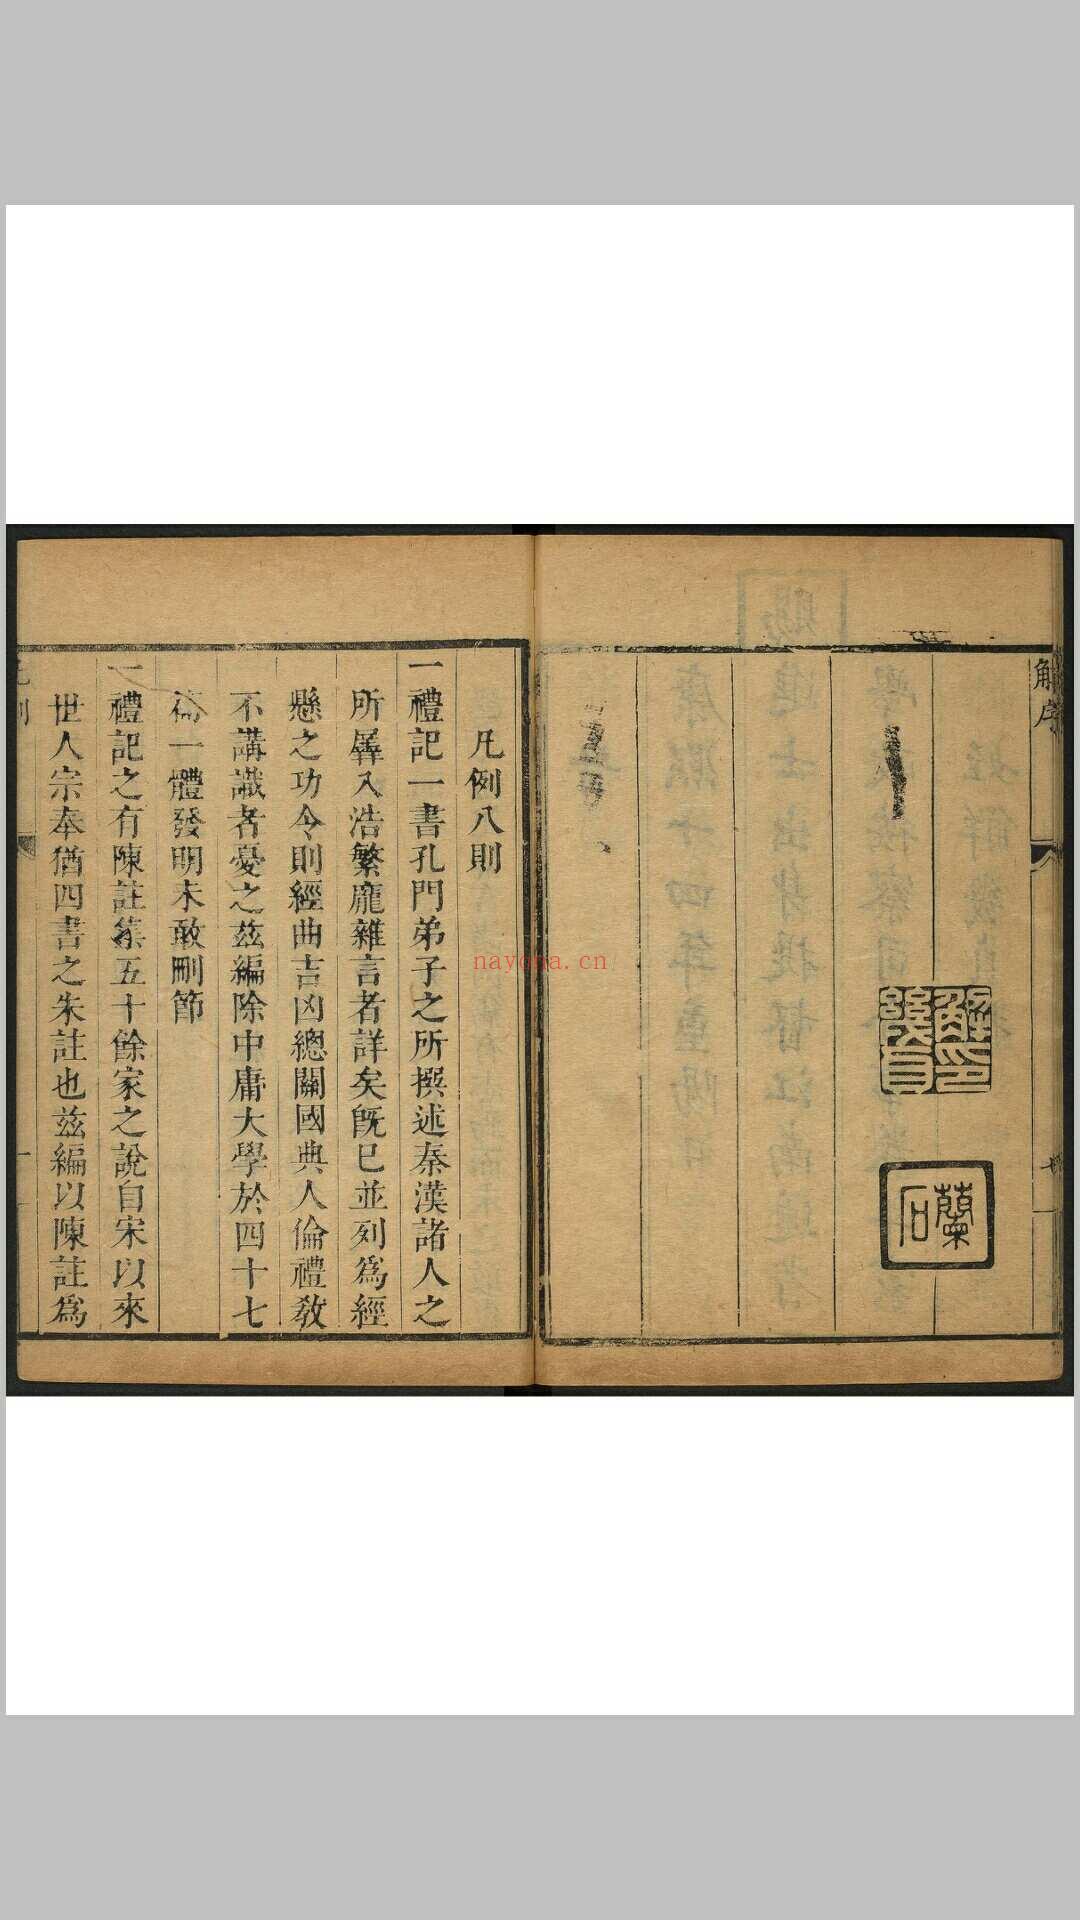 解序
蘭石
凡例八則
一禮記一書孔門弟子之所撰述秦漢諸人之
所羼入浩繁龐雜言者詳矣旣已並列爲經
懸之功令則經曲吉凶總關國典人倫禮敎
不講識者憂之茲編除中庸大學於四十七
篇一體發明未敢刪節
一禮記之有陳註集五十餘家之說自宋以來
世人宗奉猶四書之朱註也茲編以陳註爲
凡例
一
nayona.cn